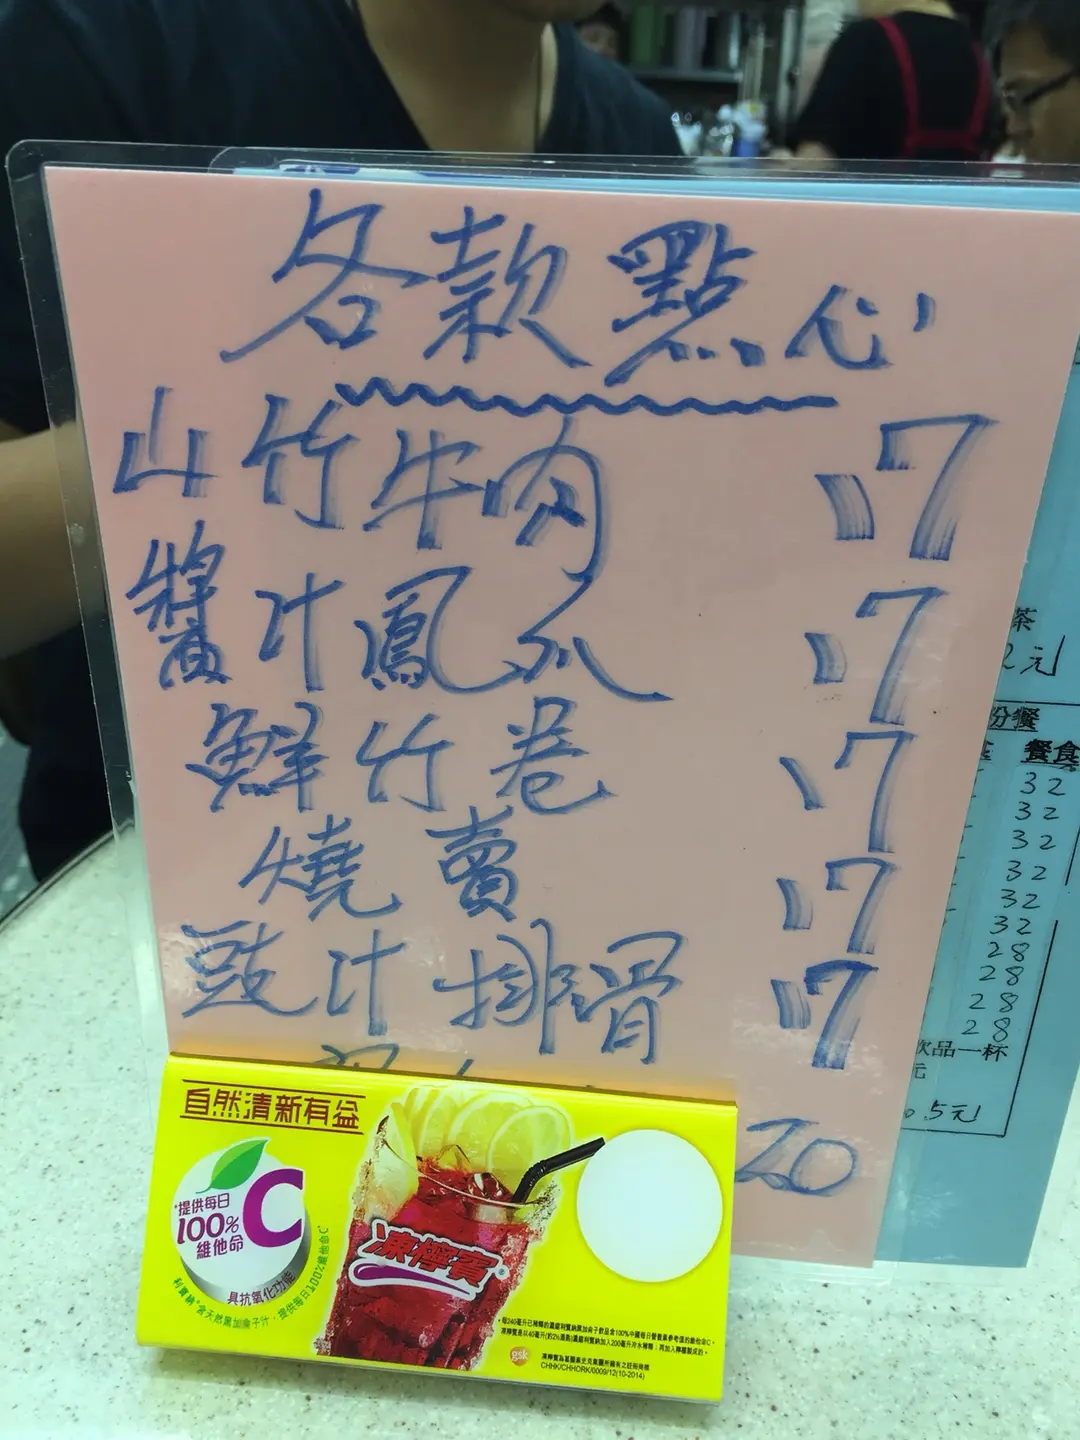 各款點心
山竹牛肉 17
醬汁鳳爪 17
鮮竹卷 17
燒賣 17
豉汁排骨 17
20
茶
2元
份餐
餐食
32
32
32
32
32
32
28
28
28
28
飲品一杯
元
.5元
自然清新有益
*提供每日
100%
維他命
C
具抗氧化功能
利賓納®含天然黑加侖子汁，提供每日100%維他命C*
凍檸賓®
gsk
凍檸賓為葛蘭素史克集團所擁有之註冊商標
CHHK/CHHDRK/0009/12(10-2014)